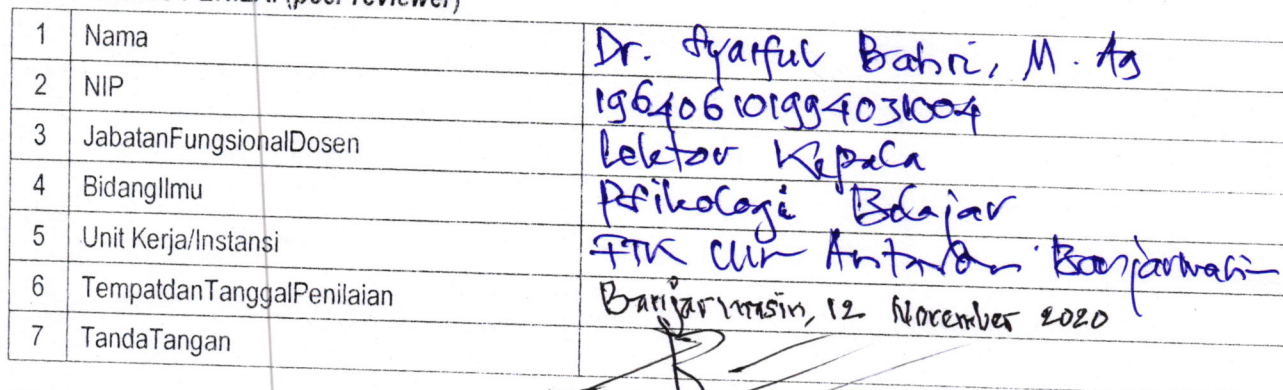 (peer reviewer)
1 Nama Dr. Syaiful Bahri, M. Ag
2 NIP 196406101994031004
3 JabatanFungsionalDosen Lektor Kepala
4 BidangIlmu Psikologi Belajar
5 Unit Kerja/Instansi FTK UIN Antasari Banjarmasin
6 TempatdanTanggalPenilaian Banjarmasin, 12 November 2020
7 TandaTangan